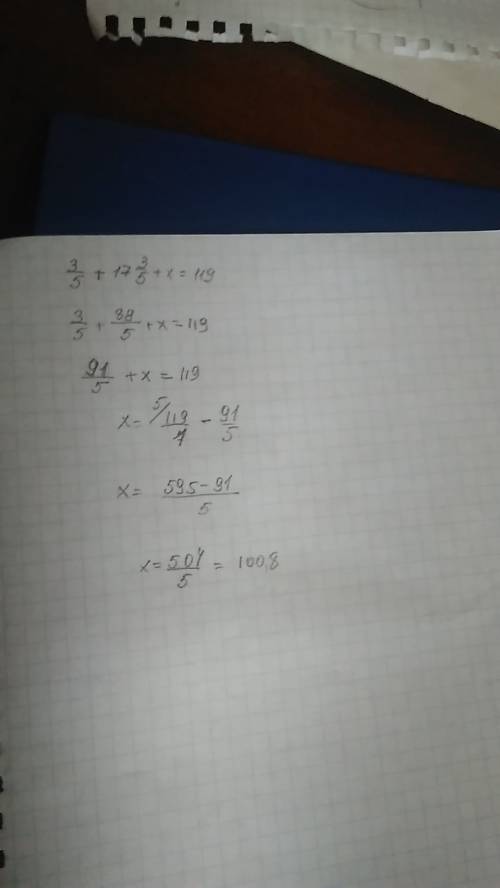 3/5 + 17 3/5 + x = 119
3/5 + 88/5 + x = 119
91/5 + x = 119
x = 5/ 119/1 - 91/5
x = 595-91/5
x = 504/5 = 100,8